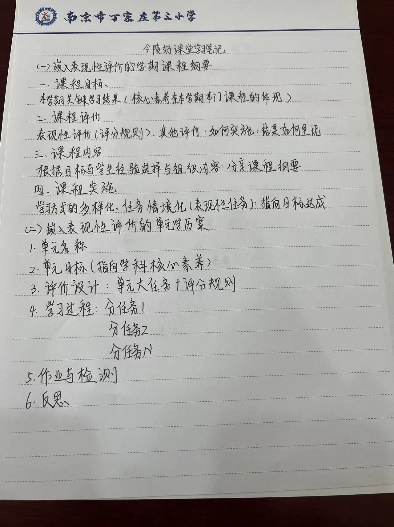 南京市丁家庄第二小学
今陵好课堂学习笔记
(一)嵌入表现性评价的学期课程纲要
一.课程目标
本学期关键学习结果(核心素养在本学期本门课程的体现)
二.课程评价
表现性评价(评分规则)、其他评价、如何实施、结果如何呈现
三.课程内容
根据目标与学生经验选择与组织内容、分享课程纲要
四.课程实施
学习方式的多样化、任务情境化(表现性任务)、指向目标达成
(二)嵌入表现性评价的单元学历案
1.单元名称
2.单元目标(指向学科核心素养)
3.评价设计:单元大任务+评分规则
4.学习过程:分任务1
分任务2
分任务N
5.作业与检测
6.反思